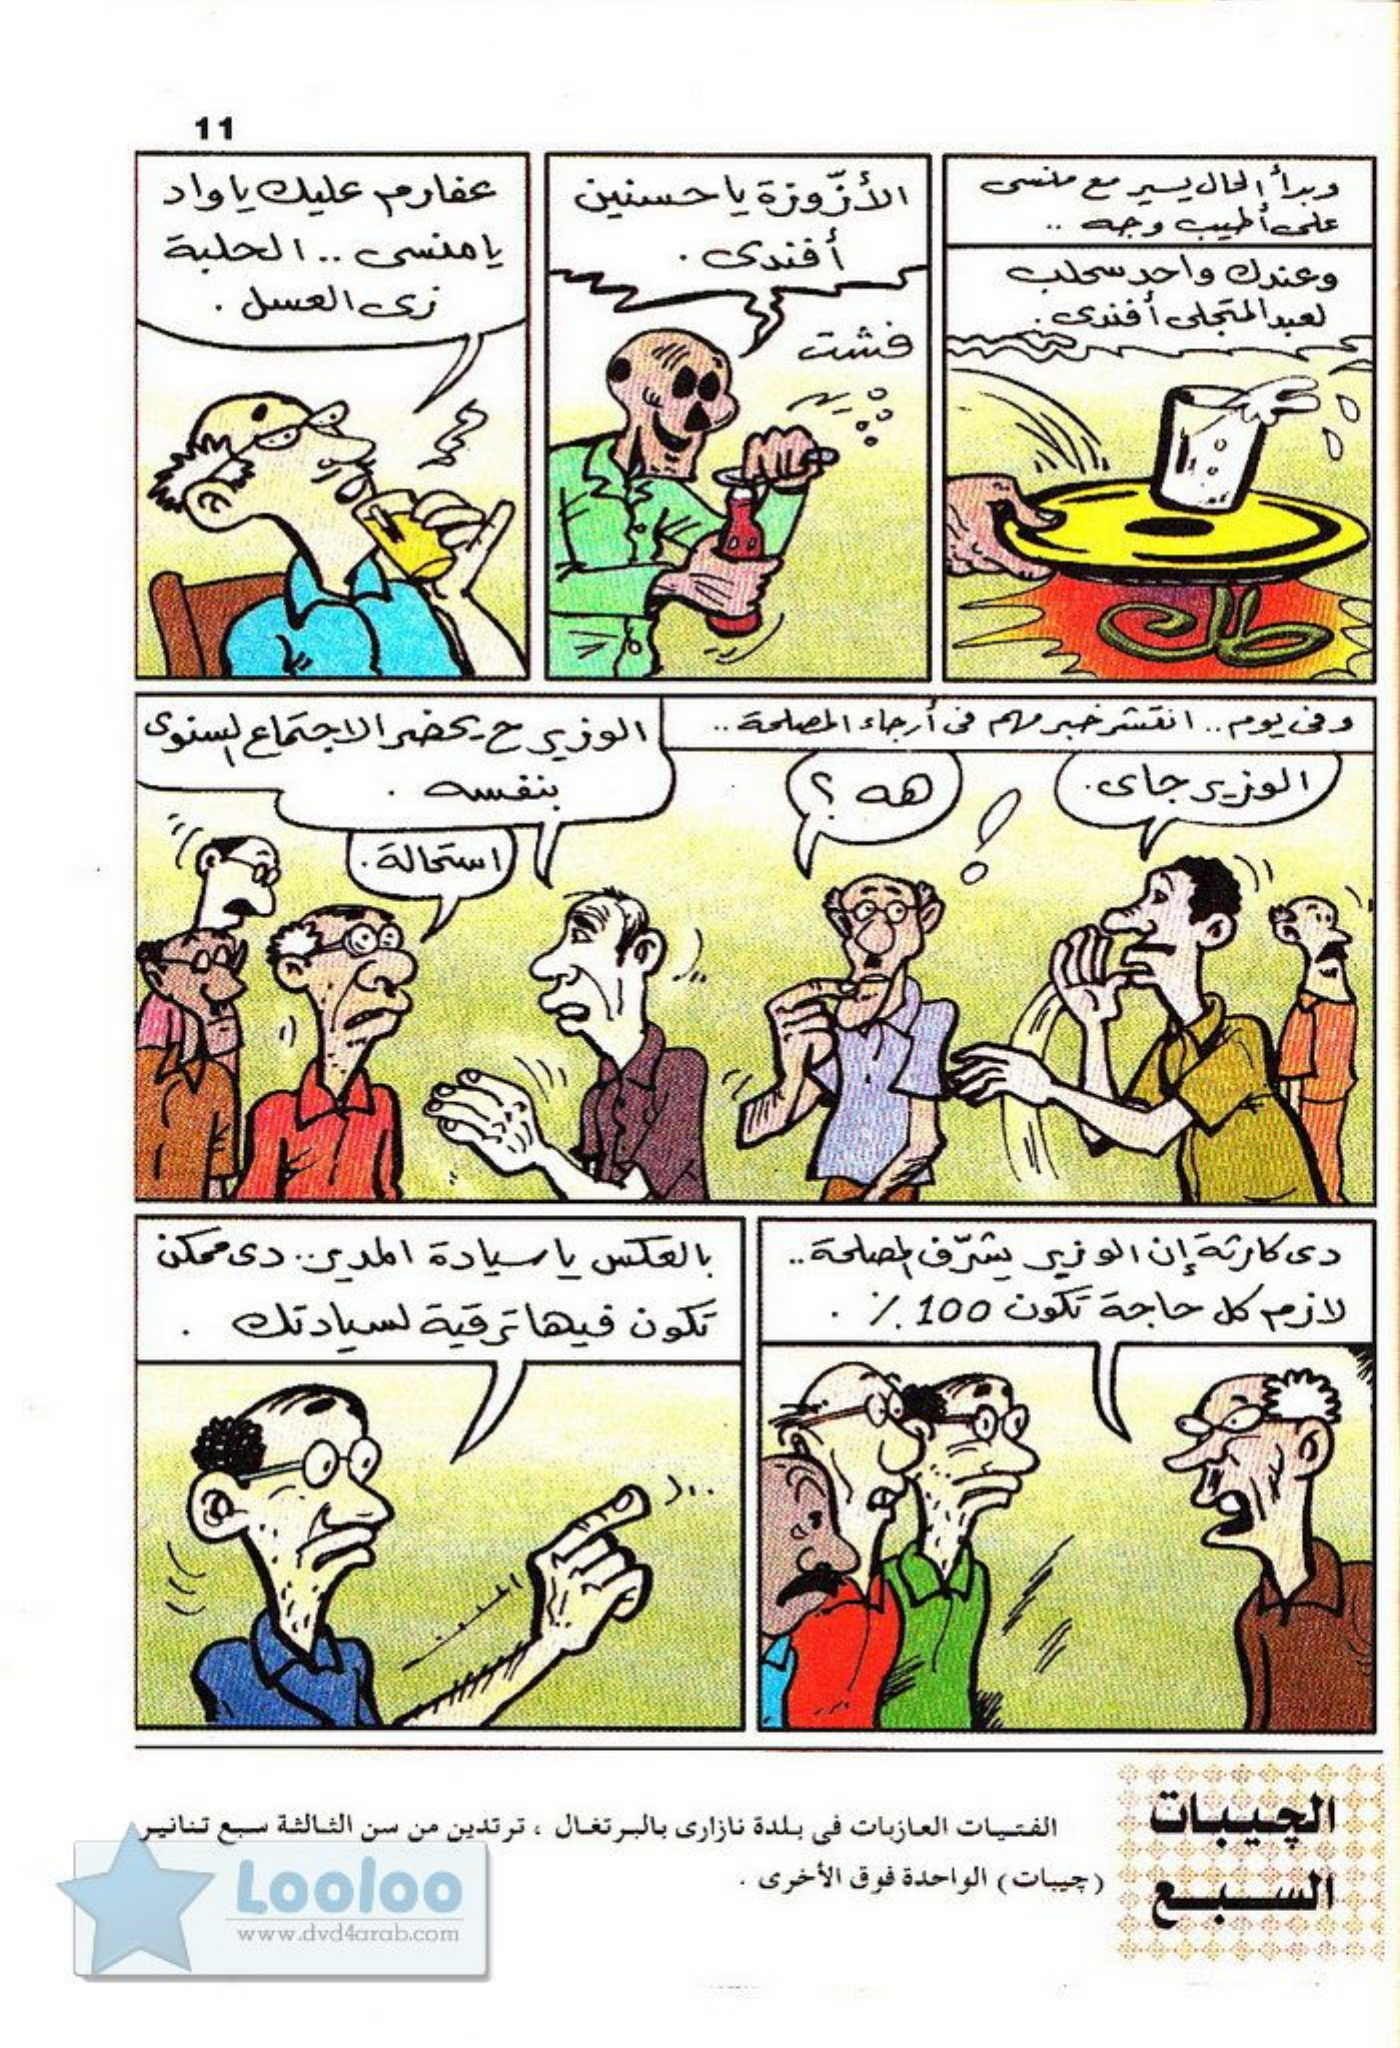 11
وبدأ الحال يسير مع منسى
على أطيب وجه ..
وعندك واحد سحلب
لعبد المتجلى أفندى .
طك
الأزّوزة يا حسنين
أفندى .
فشت
عفارم عليك يا واد
يا منسى .. الحلبة
زى العسل .
وفى يوم .. انتشر خبر مهم فى أرجاء المصلحة ..
الوزير جاى .
هه ؟
!
الوزير ح يحضر الاجتماع السنوى
بنفسه .
استحالة .
دى كارثة إن الوزير يشرّف المصلحة ..
لازم كل حاجة تكون 100 % .
بالعكس يا سيادة المدير .. دى ممكن
تكون فيها ترقية لسيادتك .
الچيبات
السبع
الفتيات العازبات فى بلدة نازارى بالبرتغال ، ترتدين من سن الثالثة سبع تنانير
(چيبات) الواحدة فوق الأخرى .
Looloo
www.dvd4arab.com